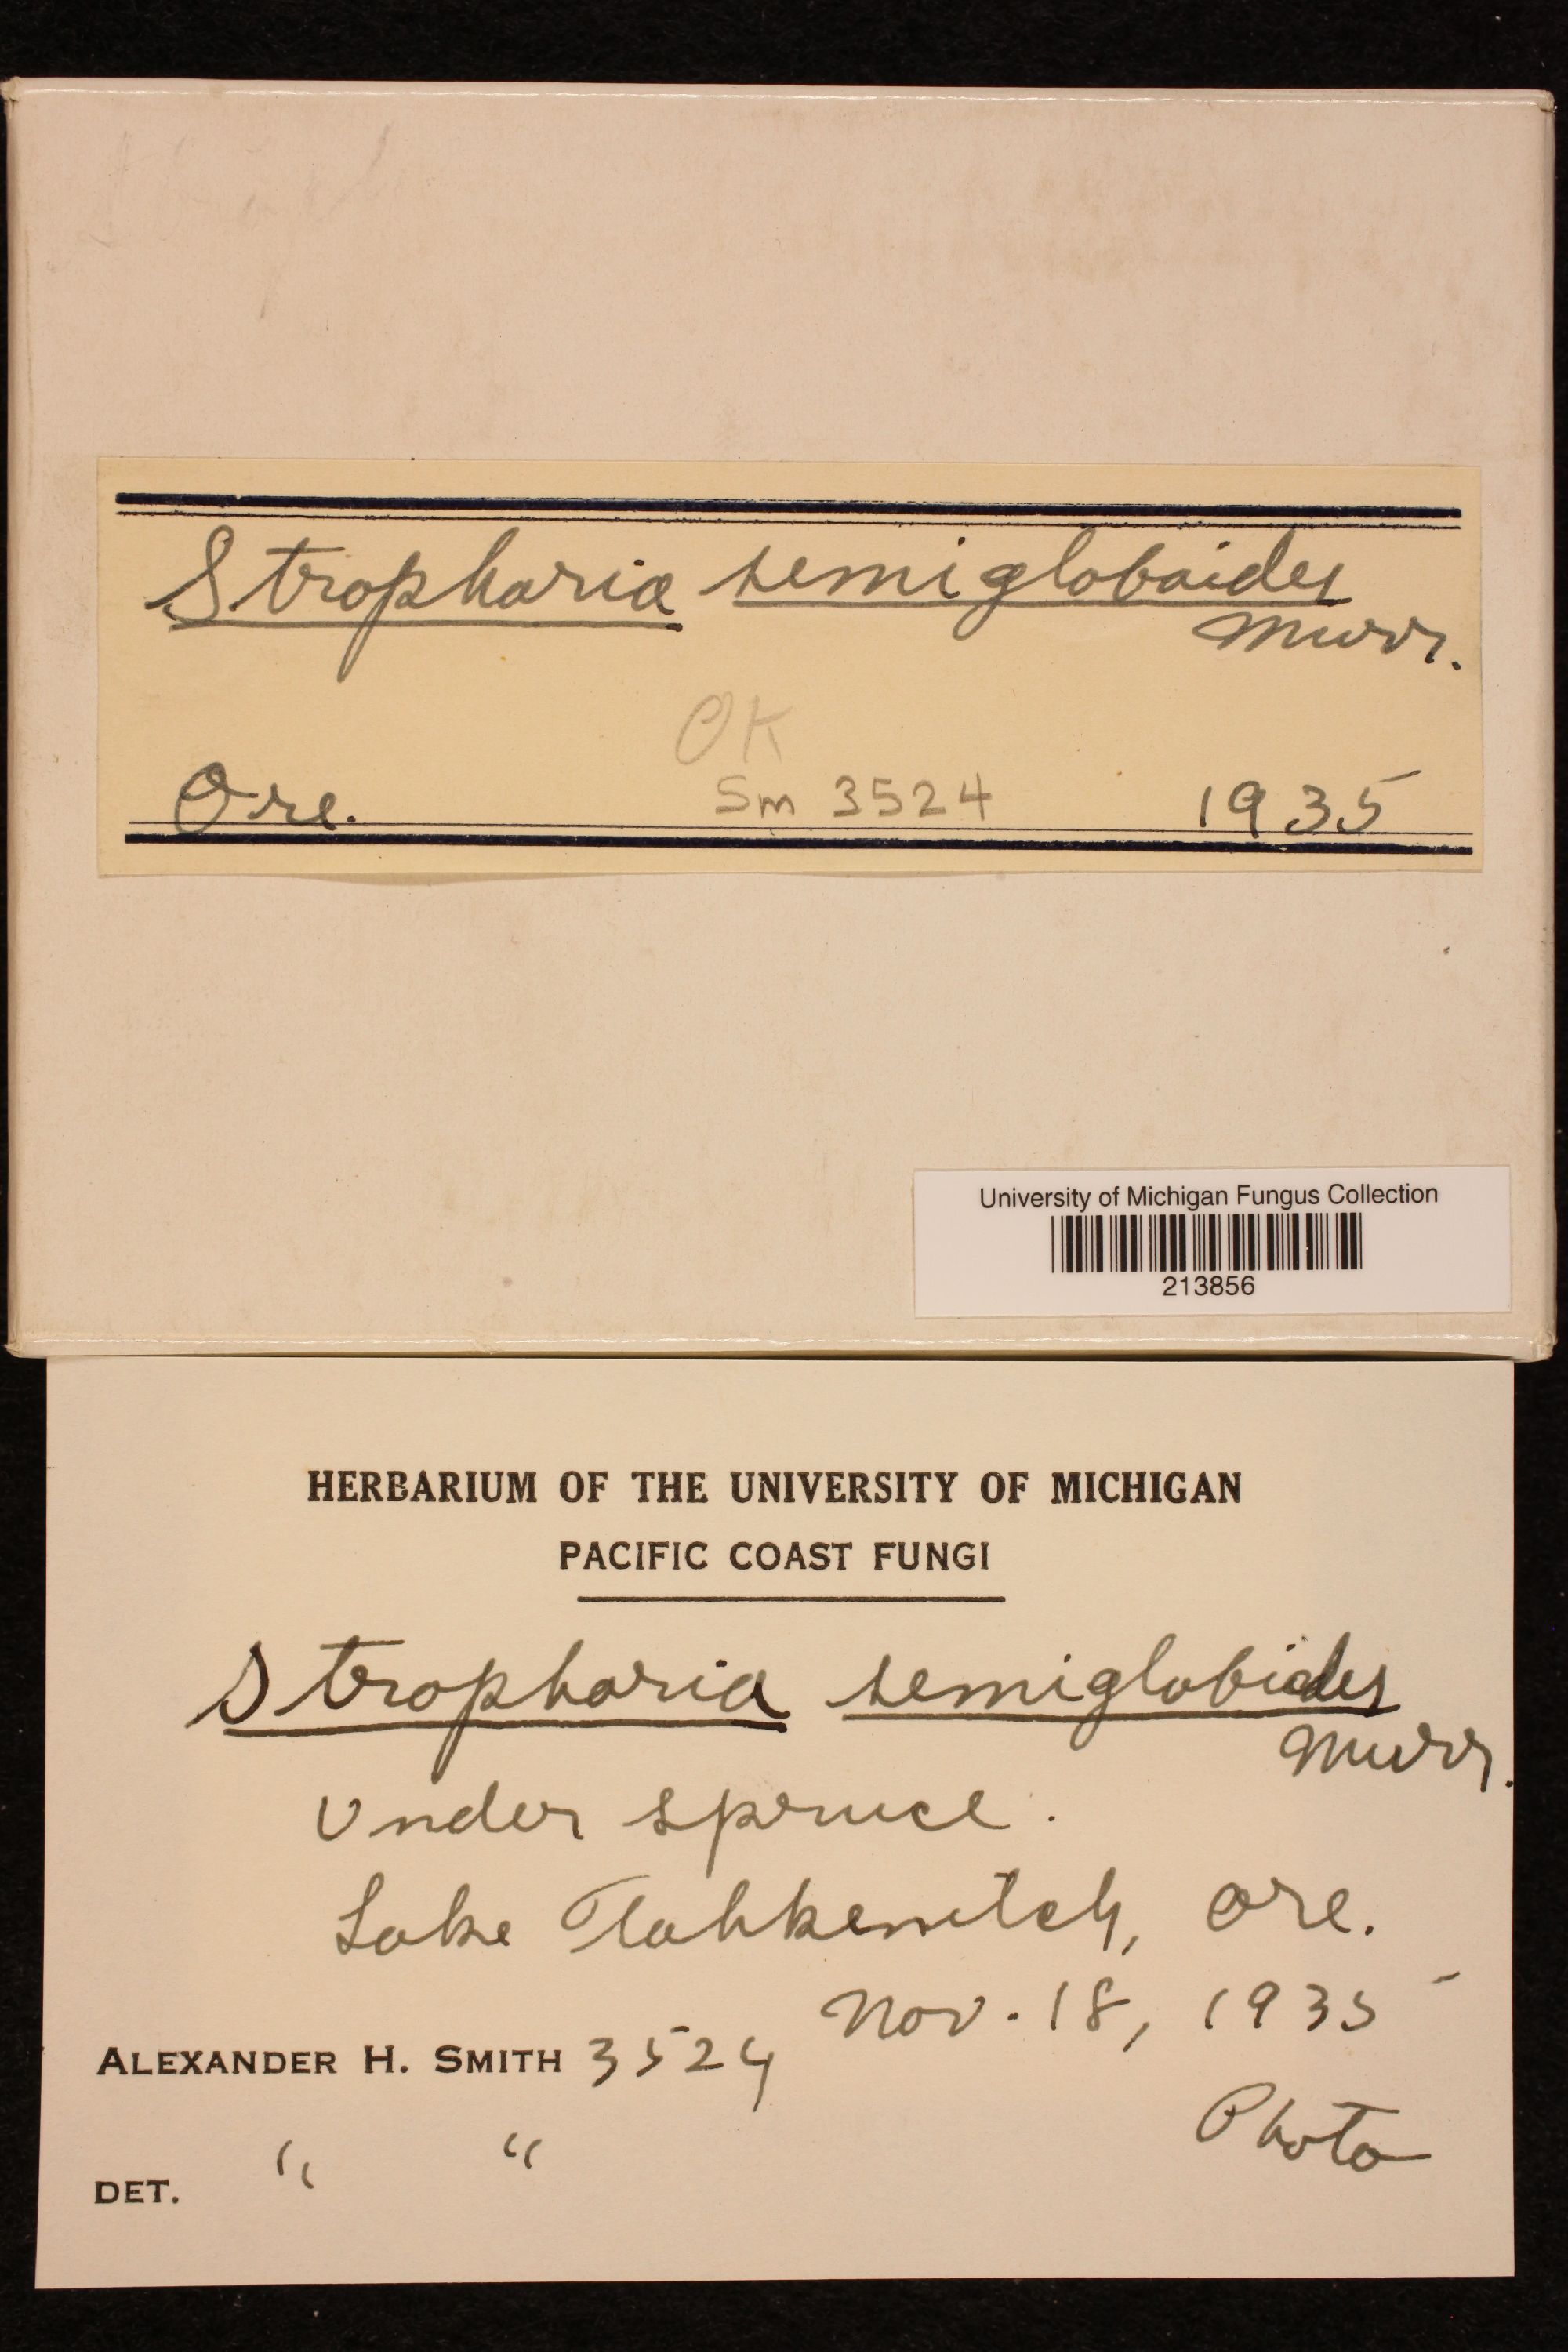 Stropharia semigloboides
Murr.
OK
Ore. Sm 3524 1935
University of Michigan Fungus Collection
213856
HERBARIUM OF THE UNIVERSITY OF MICHIGAN
PACIFIC COAST FUNGI
Stropharia semiglobides
Murr.
Under spruce.
Lake Tahkenitch, Ore.
Nov. 18, 1935
ALEXANDER H. SMITH 3524
Photo
DET. " "